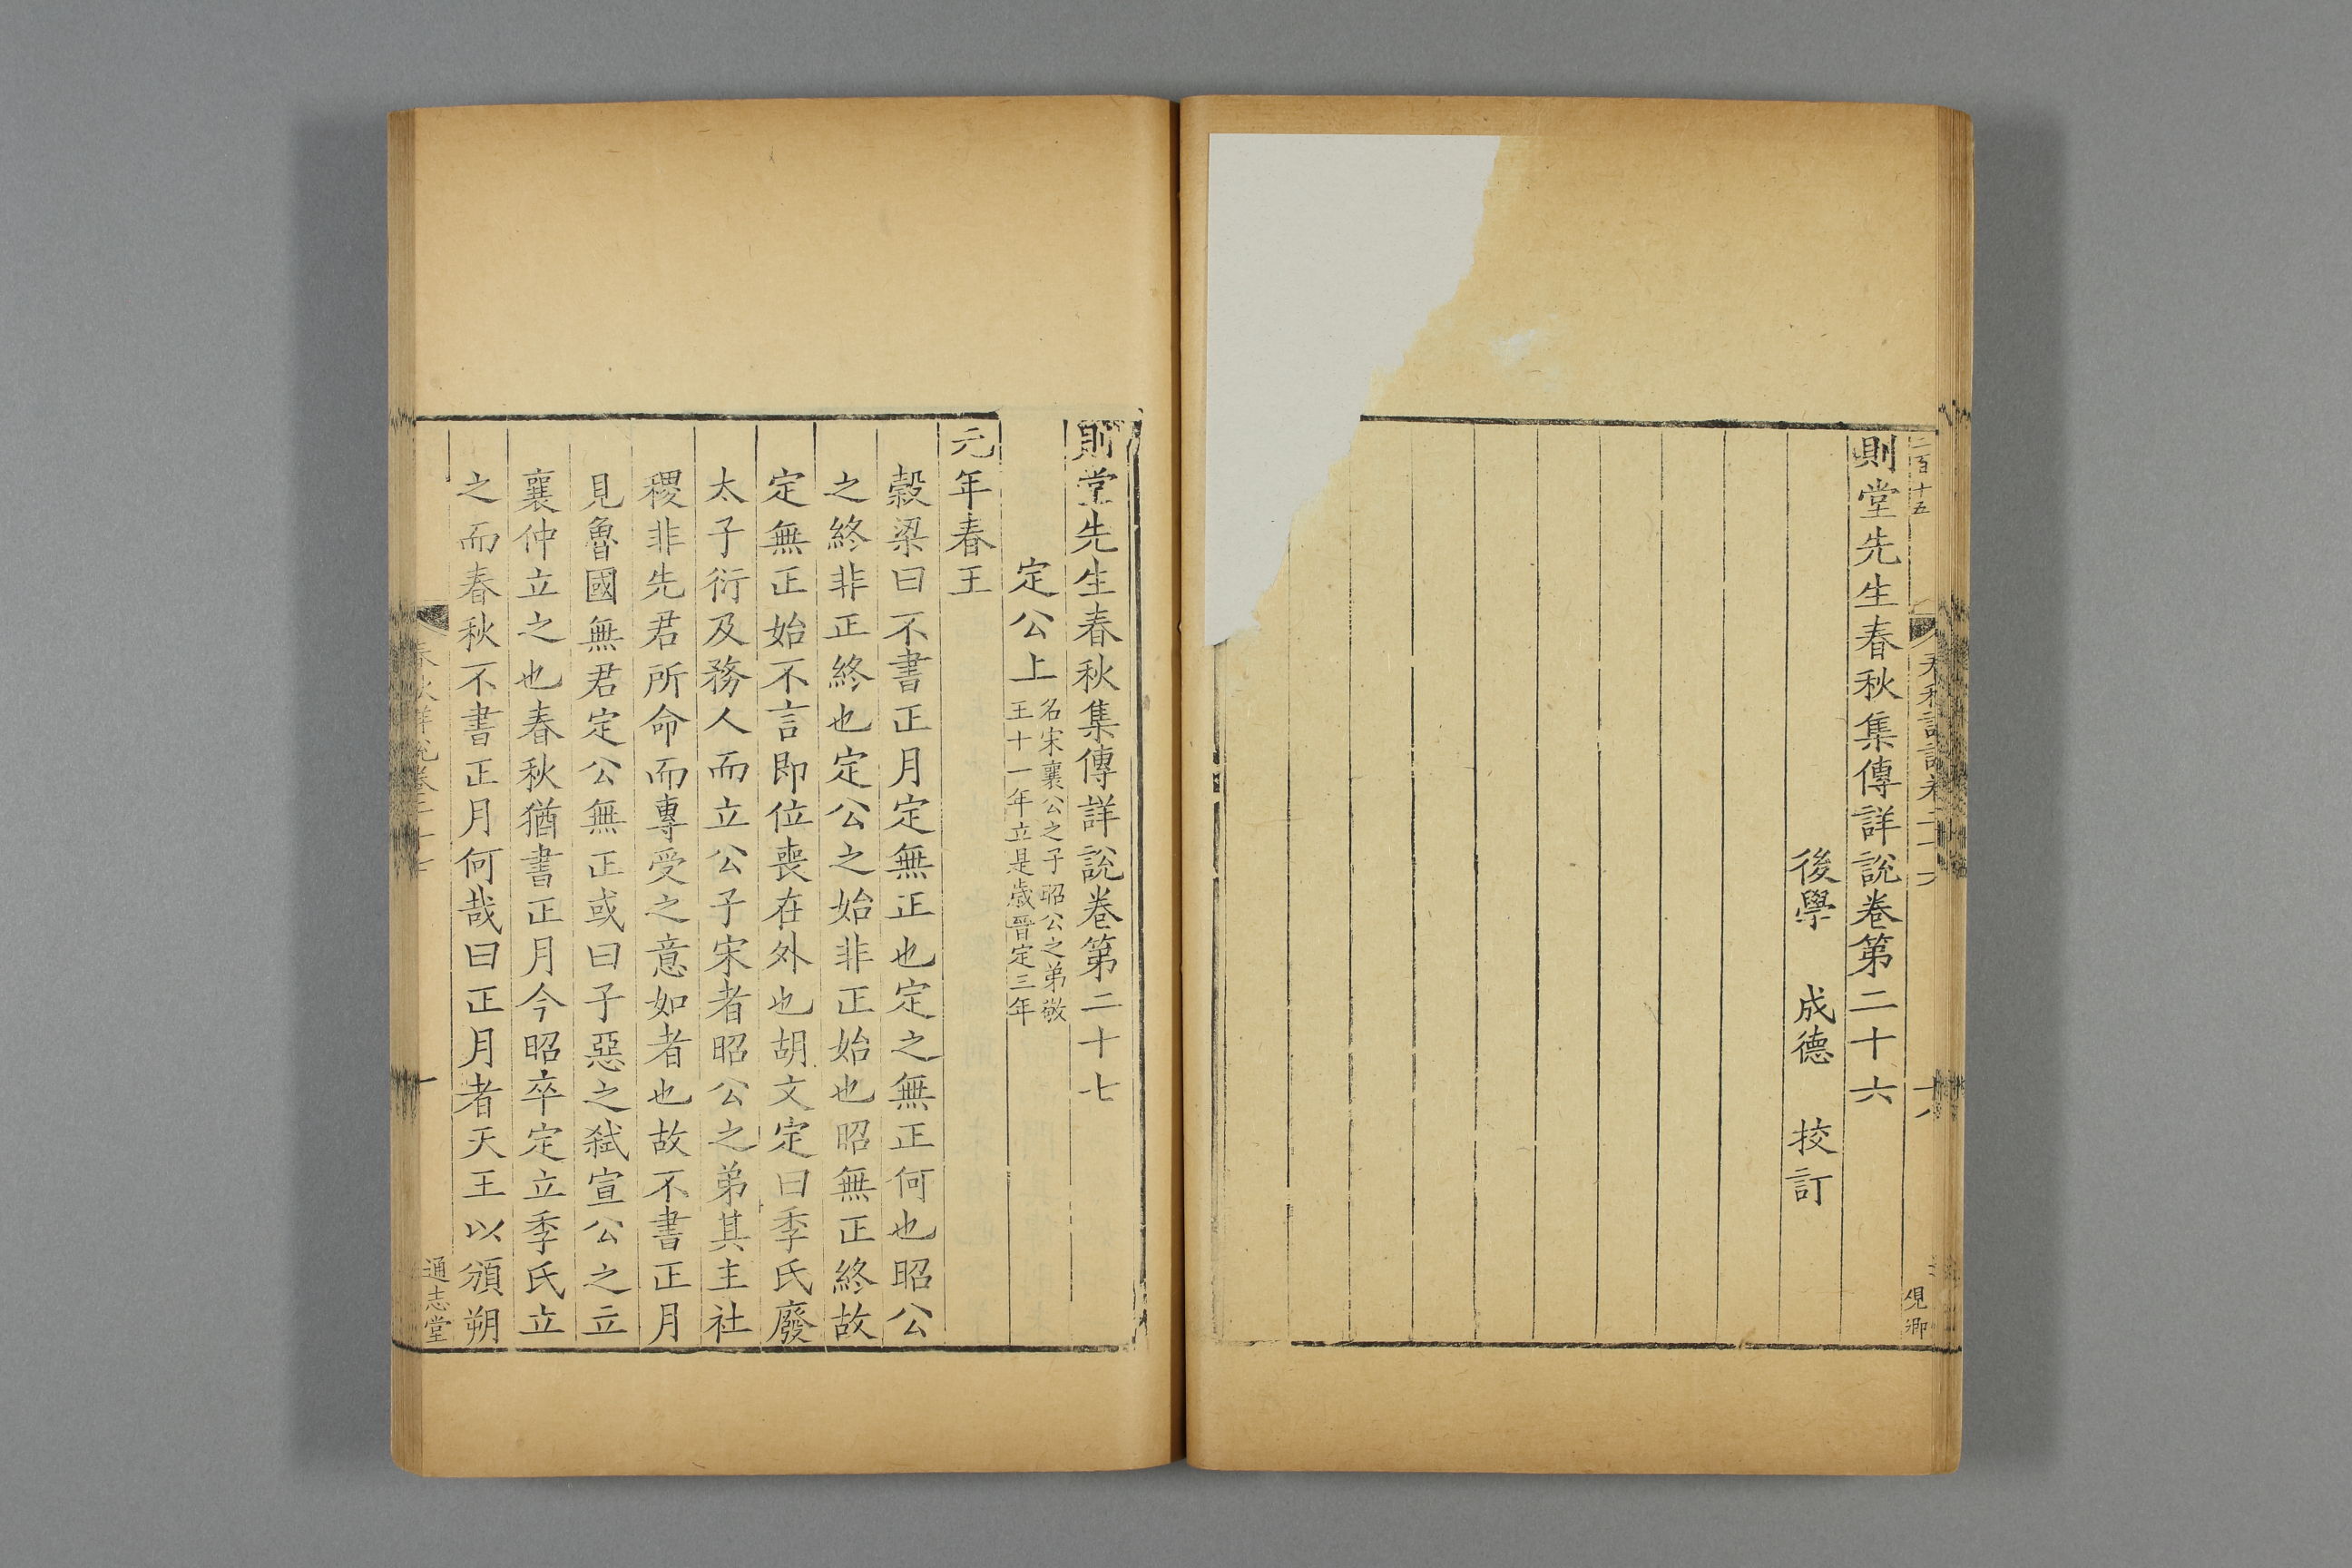 二百十五
則堂先生春秋集傳詳說卷第二十六
後學 成德 校訂
則堂先生春秋集傳詳說卷第二十七
定公上
名宋襄公之子昭公之弟敬
王十一年立是歲晉定三年
元年春王
穀梁曰不書正月定無正也定之無正何也昭公
之終非正終也定公之始非正始也昭無正終故
定無正始不言即位喪在外也胡文定曰季氏廢
太子衍及務人而立公子宋者昭公之弟其主社
稷非先君所命而專受之意如者也故不書正月
見魯國無君定公無正或曰子惡之弒宣公之立
襄仲立之也春秋猶書正月今昭卒定立季氏立
之而春秋不書正月何哉曰正月者天王以頒朔
春秋詳說卷二十七
一
通志堂